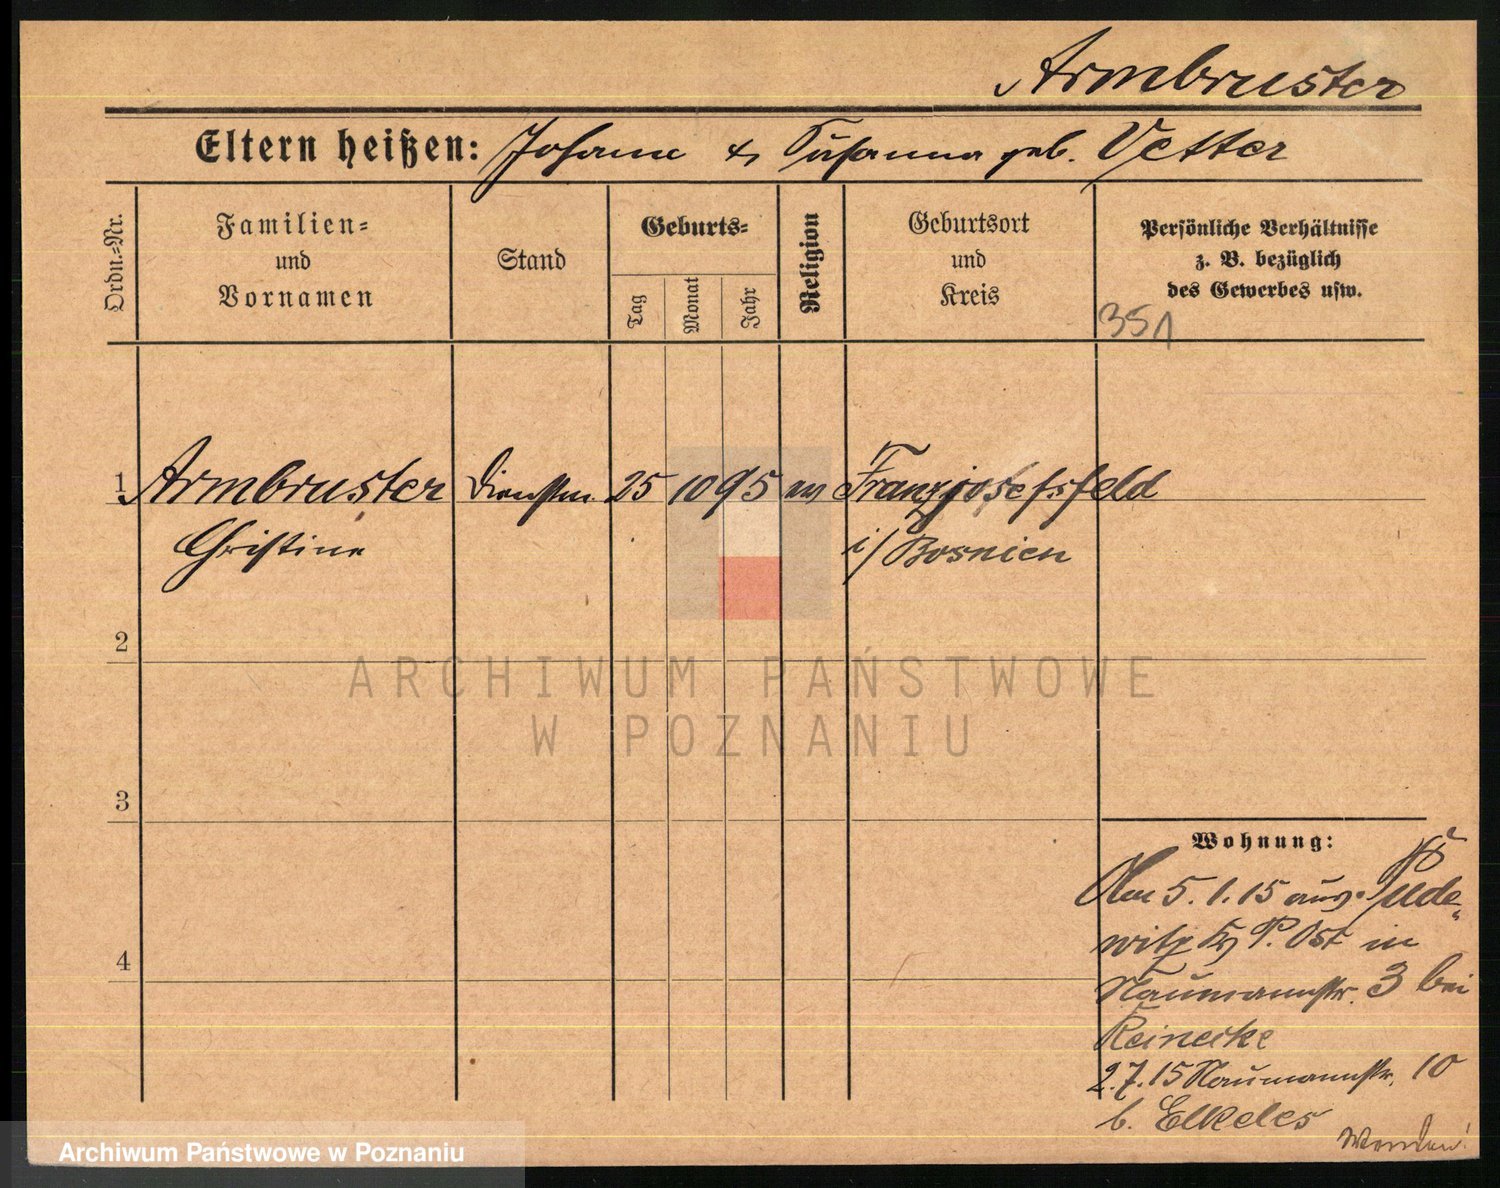 Armbruster
Eltern heißen: Johann & Susanna geb. Vetter
Ordn.-Nr.
Familien-
und
Vornamen
Stand
Geburts-
Tag
Monat
Jahr
Religion
Geburtsort
und
Kreis
Persönliche Verhältnisse
z. B. bezüglich
des Gewerbes usw.
351
1 Armbruster Dienstm. 25 10 95 ev Franzjosefsfeld
Christine i/ Bosnien
2
3
4
Wohnung:
Am 5. 1. 15 aus Pude-
witz P. Ost in
Naumannstr. 3 bei
Reinecke
2.7.15 Naumannstr. 10
b. Elkeles
Wenden!
ARCHIWUM PAŃSTWOWE
W POZNANIU
Archiwum Państwowe w Poznaniu